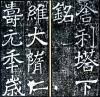 舍利塔下
銘
維大隋仁
壽元年歲